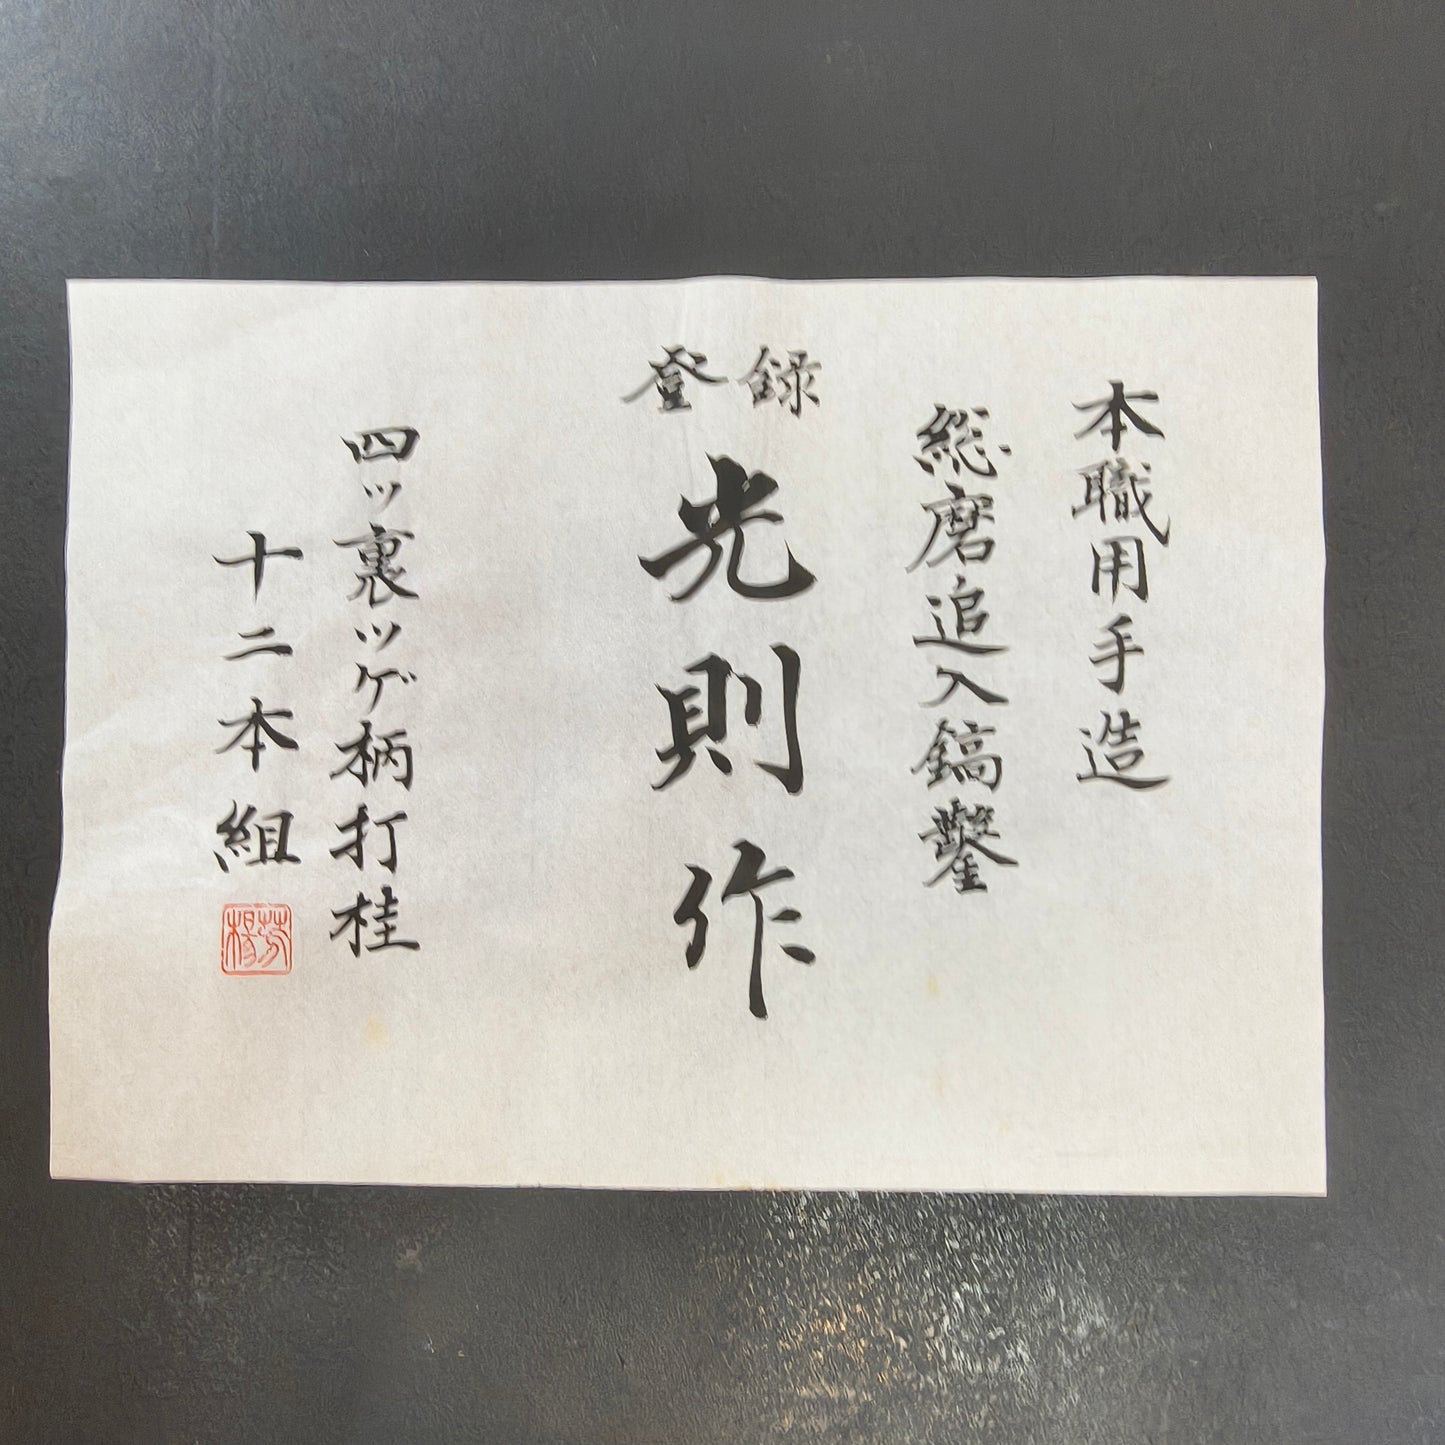 本職用手造
総磨追入鎬鑿
登録
光則作
四ッ裏ツゲ柄打桂
十二本組